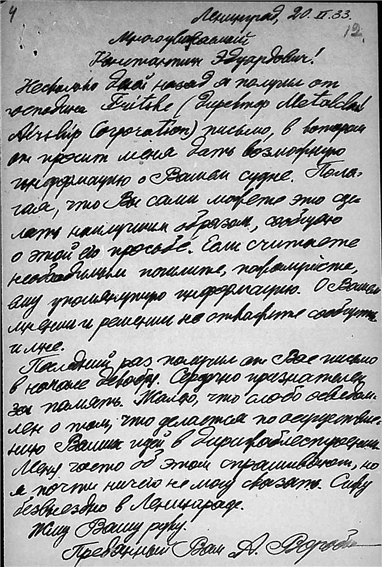 4
Ленинград, 20.II.33.
12.
Многоуважаемый
Константин Эдуардович!
Несколько дней назад я получил от
господина Fritshe (Директор Metalclad
Airship Corporation) письмо, в котором
он просит меня дать возможную
информацию о Вашем судне. Пола-
гая, что Вы сами можете это сде-
лать наилучшим образом, сообщаю
о этой его просьбе. Если считаете
необходимым пошлите, пожалуйста,
ему упомянутую информацию. О Вашем
мнении и решении не откажите сообщить
и мне.
Последний раз получил от Вас письмо
в начале декабря. Сердечно признателен
за память. Жалею, что слабо осведом-
лен о том, что делается по осуществле-
нию Ваших идей в дирижаблестроении.
Меня часто об этом спрашивают, но
я почти ничего не могу сказать. Сижу
безвыездно в Ленинграде.
Жму Вашу руку.
Преданный Вам А.